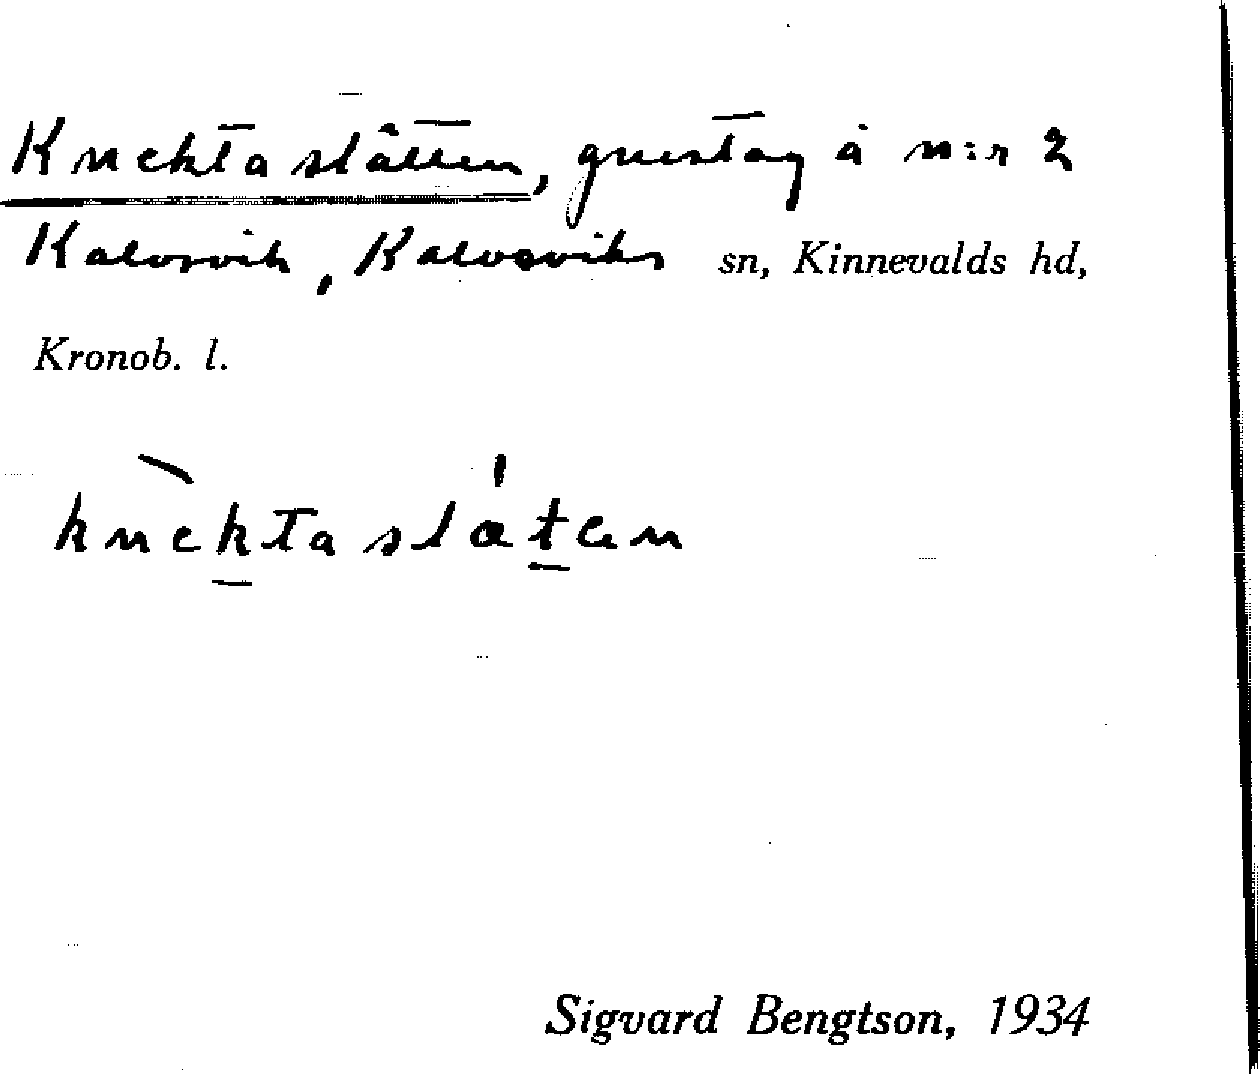 Knektaslätten, grustag å n:r 2
Kalvsvik, Kalvsviks sn, Kinnevalds hd,
Kronob. l.
knèktaslǽten
Sigvard Bengtson, 1934